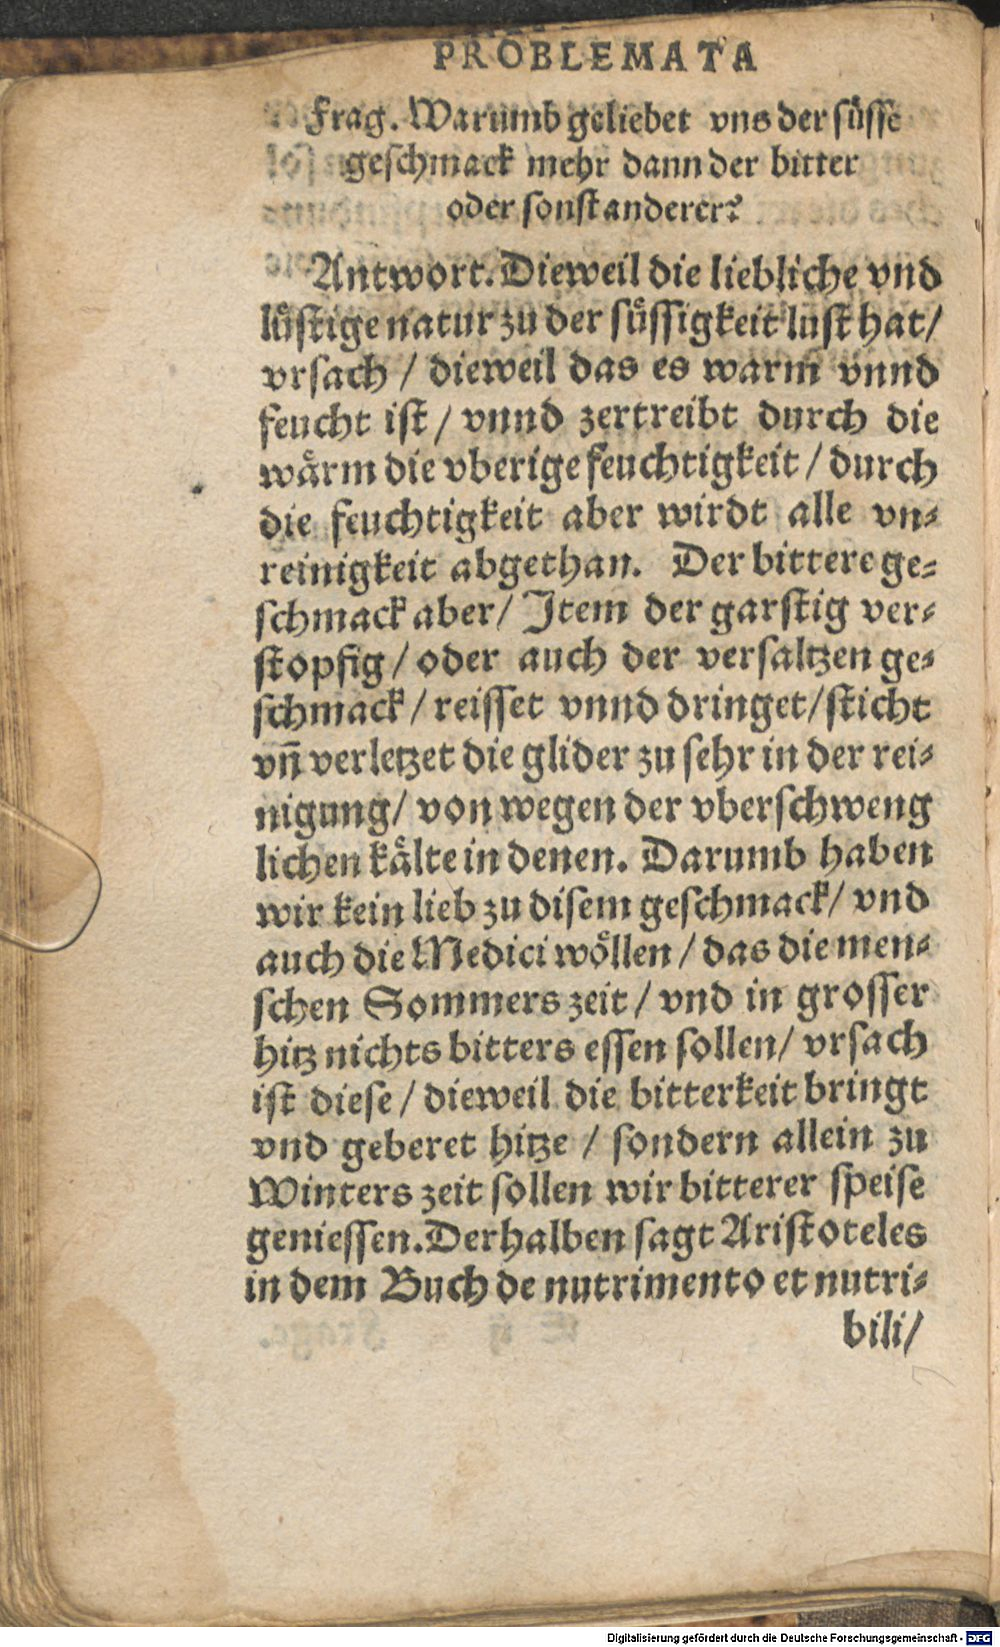 PROBLEMATA
Frag. Warumb geliebet vns der süsse
geschmack mehr dann der bitter
oder sonst anderer?
Antwort. Dieweil die liebliche vnd
lüstige natur zu der süssigkeit lust hat/
vrsach / dieweil das es warm vnnd
feucht ist / vnnd zertreibt durch die
wärm die vberige feuchtigkeit / durch
die feuchtigkeit aber wirdt alle vn-
reinigkeit abgethan. Der bittere ge-
schmack aber/ Item der garstig ver-
stopfig / oder auch der versaltzen ge-
schmack / reisset vnnd dringet/sticht
vñ verletzet die glider zu sehr in der rei-
nigung/ von wegen der vberschweng
lichen kälte in denen. Darumb haben
wir kein lieb zu disem geschmack/ vnd
auch die Medici wöllen / das die men-
schen Sommers zeit / vnd in grosser
hitz nichts bitters essen sollen/ vrsach
ist diese / dieweil die bitterkeit bringt
vnd geberet hitze / sondern allein zu
Winters zeit sollen wir bitterer speise
geniessen. Derhalben sagt Aristoteles
in dem Buch de nutrimento et nutri-
bili/
Digitalisierung gefördert durch die Deutsche Forschungsgemeinschaft - DFG